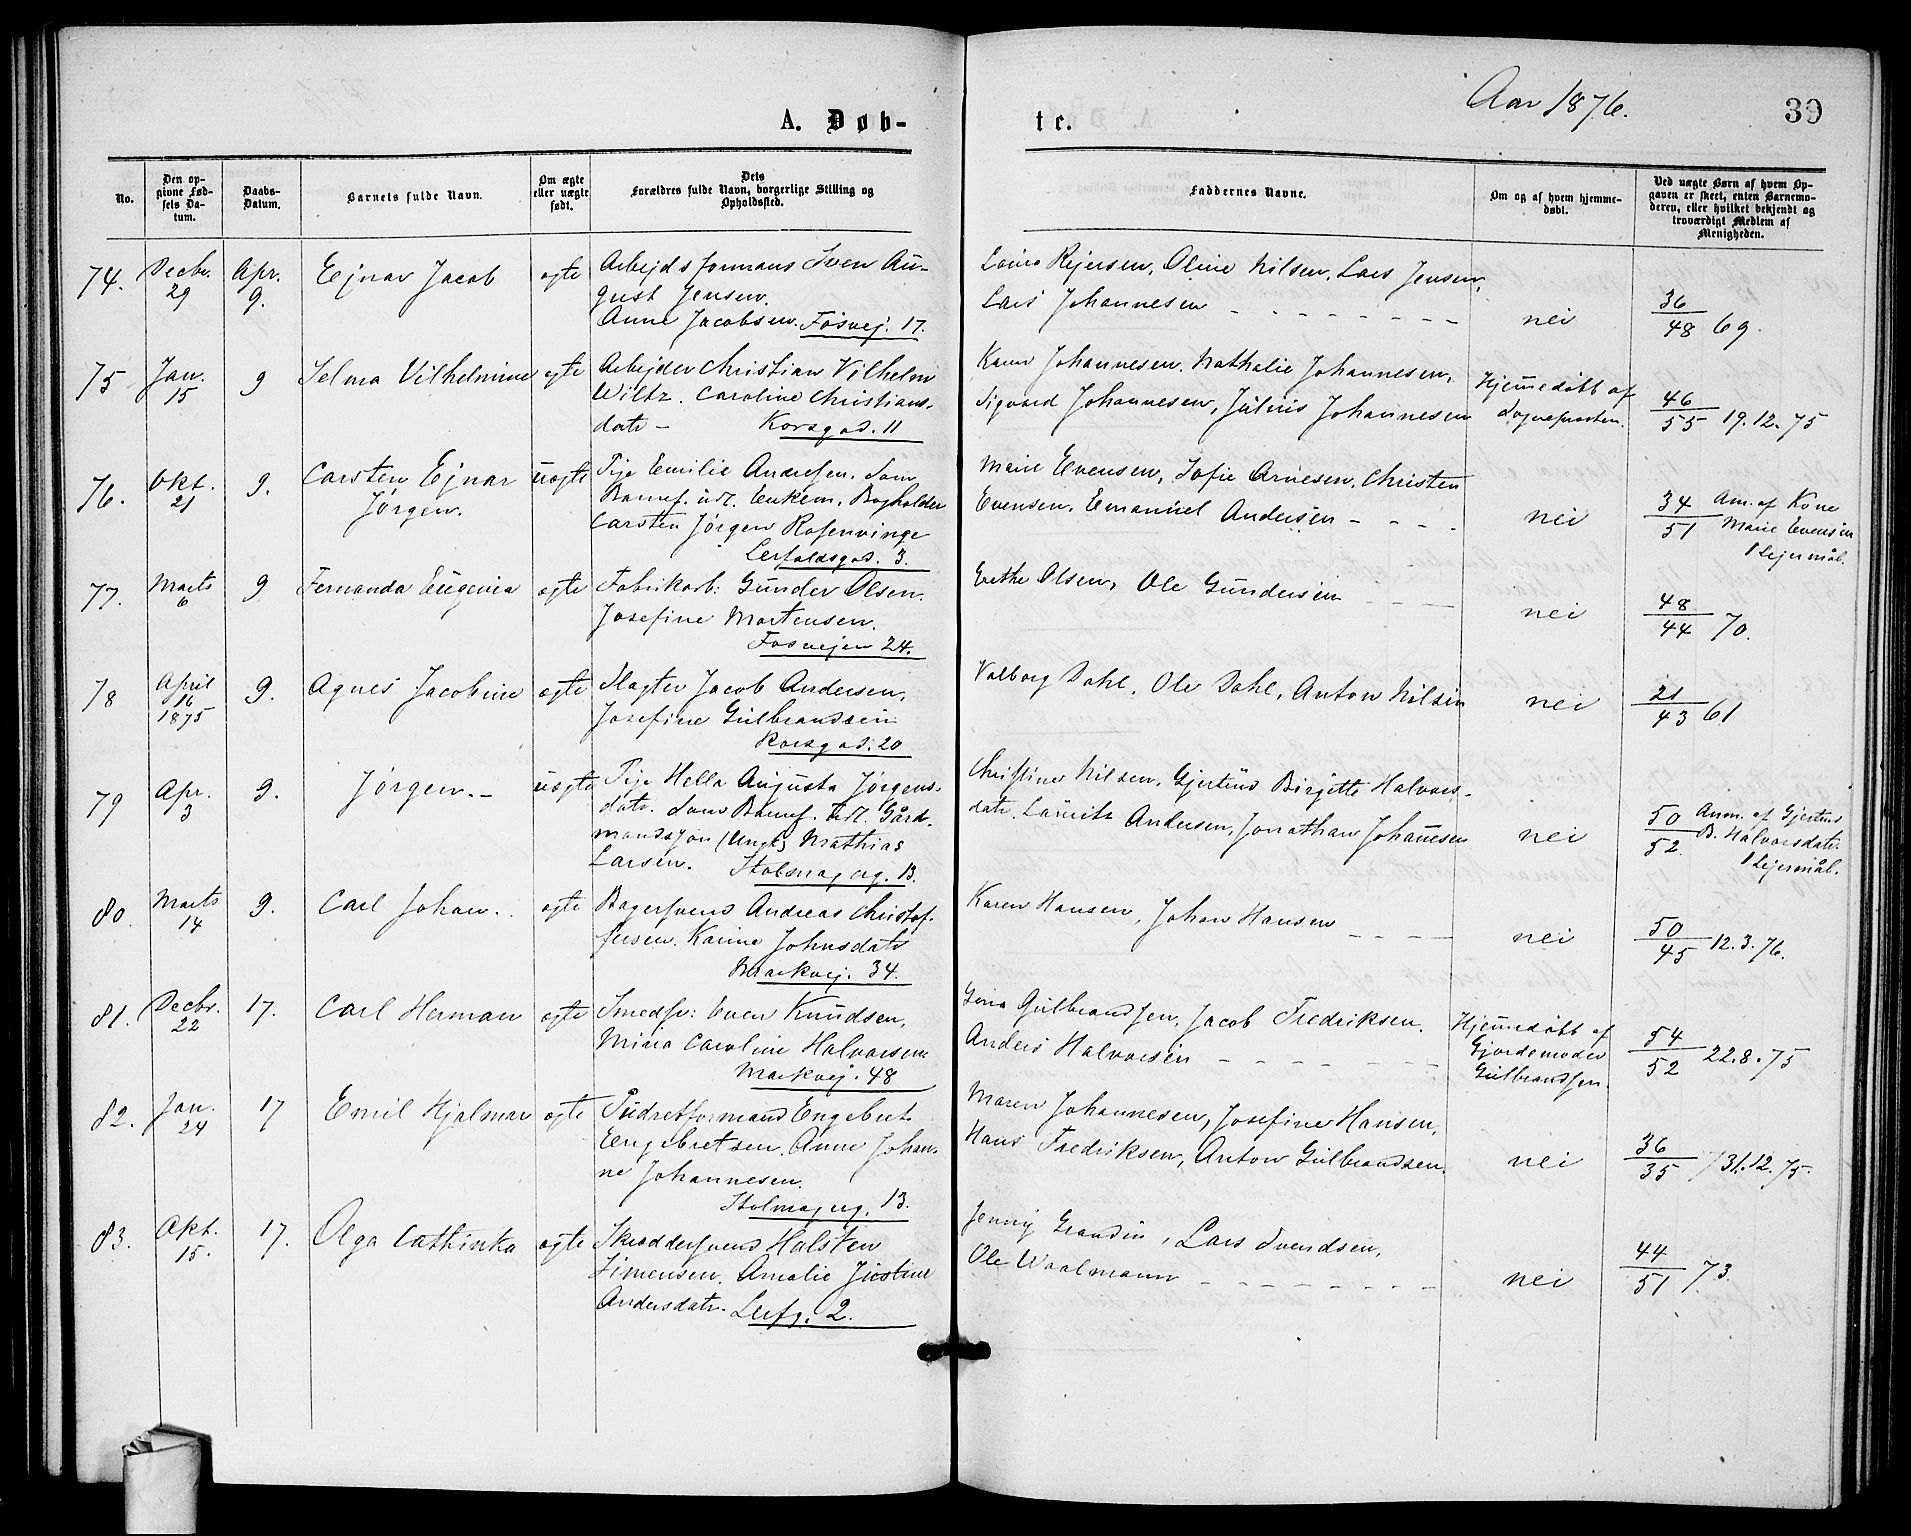 Aar 1876.
39
A. Døb-
te.
No.
Den op-
givne Fød-
sels Da-
tum.
Daabs-
Datum.
Barnets fulde Navn.
Om ægte
eller uægte
født.
Dets
Forældres fulde Navn, borgerlige Stilling og
Opholdssted.
Faddernes Navne.
Om og af hvem hjemme-
døbt.
Ved uægte Børn af hvem Op-
gaven er skeet, enten Barnemo-
deren, eller hvilket bekjendt og
troværdigt Medlem af
Menigheden.
74. Decbr. 29 Apr. 9. Ejnar Jacob ægte
Arbejdsformand Sven Au-
gust Jensen.
Anne Jacobsen. Fosvej. 17.
Rejersen, Oline Nilsen, Lars Jensen,
Lars Johannesen
nei
36/48 69.
75 Jan. 15 9 Selma Vilhelmine ægte
Arbejder Christian Vilhelm
Wiltz. Caroline Christians-
datr - Korsgad. 11
Karen Johannesen, Nathalie Johannesen,
Sigvard Johannesen, Julius Johannesen
Hjemmedøbt af
Sognepresten.
46/55 19.12.75
76. Okt. 21 9. Carsten Ejnar
Jørgen. uægte
Pige Emilie Andresen. Som
Barnef. udl. Enkem. Bogholder
Carsten Jørgen Rosenvinge
Lerfaldsgad. 3.
Marie Evensen, Sofie Arnesen, Christen
Evensen, Emanuel Andersen
nei
34/51 Anm. af Kone
Marie Evensen
1 Lejermål.
77. Marts 6 9 Fernanda Eugenia ægte
Fabrikarb: Gunder Olsen.
Josefine Mortensen.
Fosvejen 24.
Grethe Olsen, Ole Gundersen
nei
48/44 70.
78 April 16 1875 9. Agnes Jacobine ægte
Slagter Jacob Andersen,
Josefine Gulbrandsen
Korsgad. 20
Valborg Dahl, Ole Dahl, Anton Nilsen
nei
21/43 61
79 Apr. 3 9. Jørgen. - uægte
Pige Hella Augusta Jørgens-
datr. Som Barnef. udl. Gård-
mandssøn (Ungk) Mathias
Larsen. Stolmagerg. 13.
Christine Nilsen, Gjertine Birgitte Halvors-
datr. Lauritz Andersen, Jonathan Johannesen
nei
50/52. Anm. af Gjertine
B. Halvorsdatr.
1 Lejermål.
80. Marts 14 9. Carl Johan. ægte
Bagersvend Andreas Christof-
fersen. Karine Johnsdatr
Markvej. 34.
Karen Hansen, Johan Hansen
nei
50/45 12.3.76.
81. Decbr. 22 17. Carl Herman ægte
Smedsv: Even Knudsen,
Mina Caroline Halvorsen
Markvej. 48
Gina Gulbrandsen, Jacob Fredriksen.
Anders Halvorsen
Hjemmedøbt af
Gjordemoder
Gulbrandsen.
54/52 22.8.75
82. Jan. 24 17 Emil Hjalmar ægte
Pudretformand Engebret
Engebretsen. Anne Johan-
ne Johannesen.
Stolmagerg. 13.
Maren Johannesen, Josefine Hansen,
Hans Fredriksen, Anton Gulbrandsen.
nei
36/35 31.12.75.
83. Okt. 15. 17. Olga Cathinka ægte
Skræddersvend Halsten
Simensen. Amalie Justine
Andersdatr. Lerfg. 2.
Jenny Grandin, Lars Svendsen,
Ole Waalmann
nei
44/51 73.